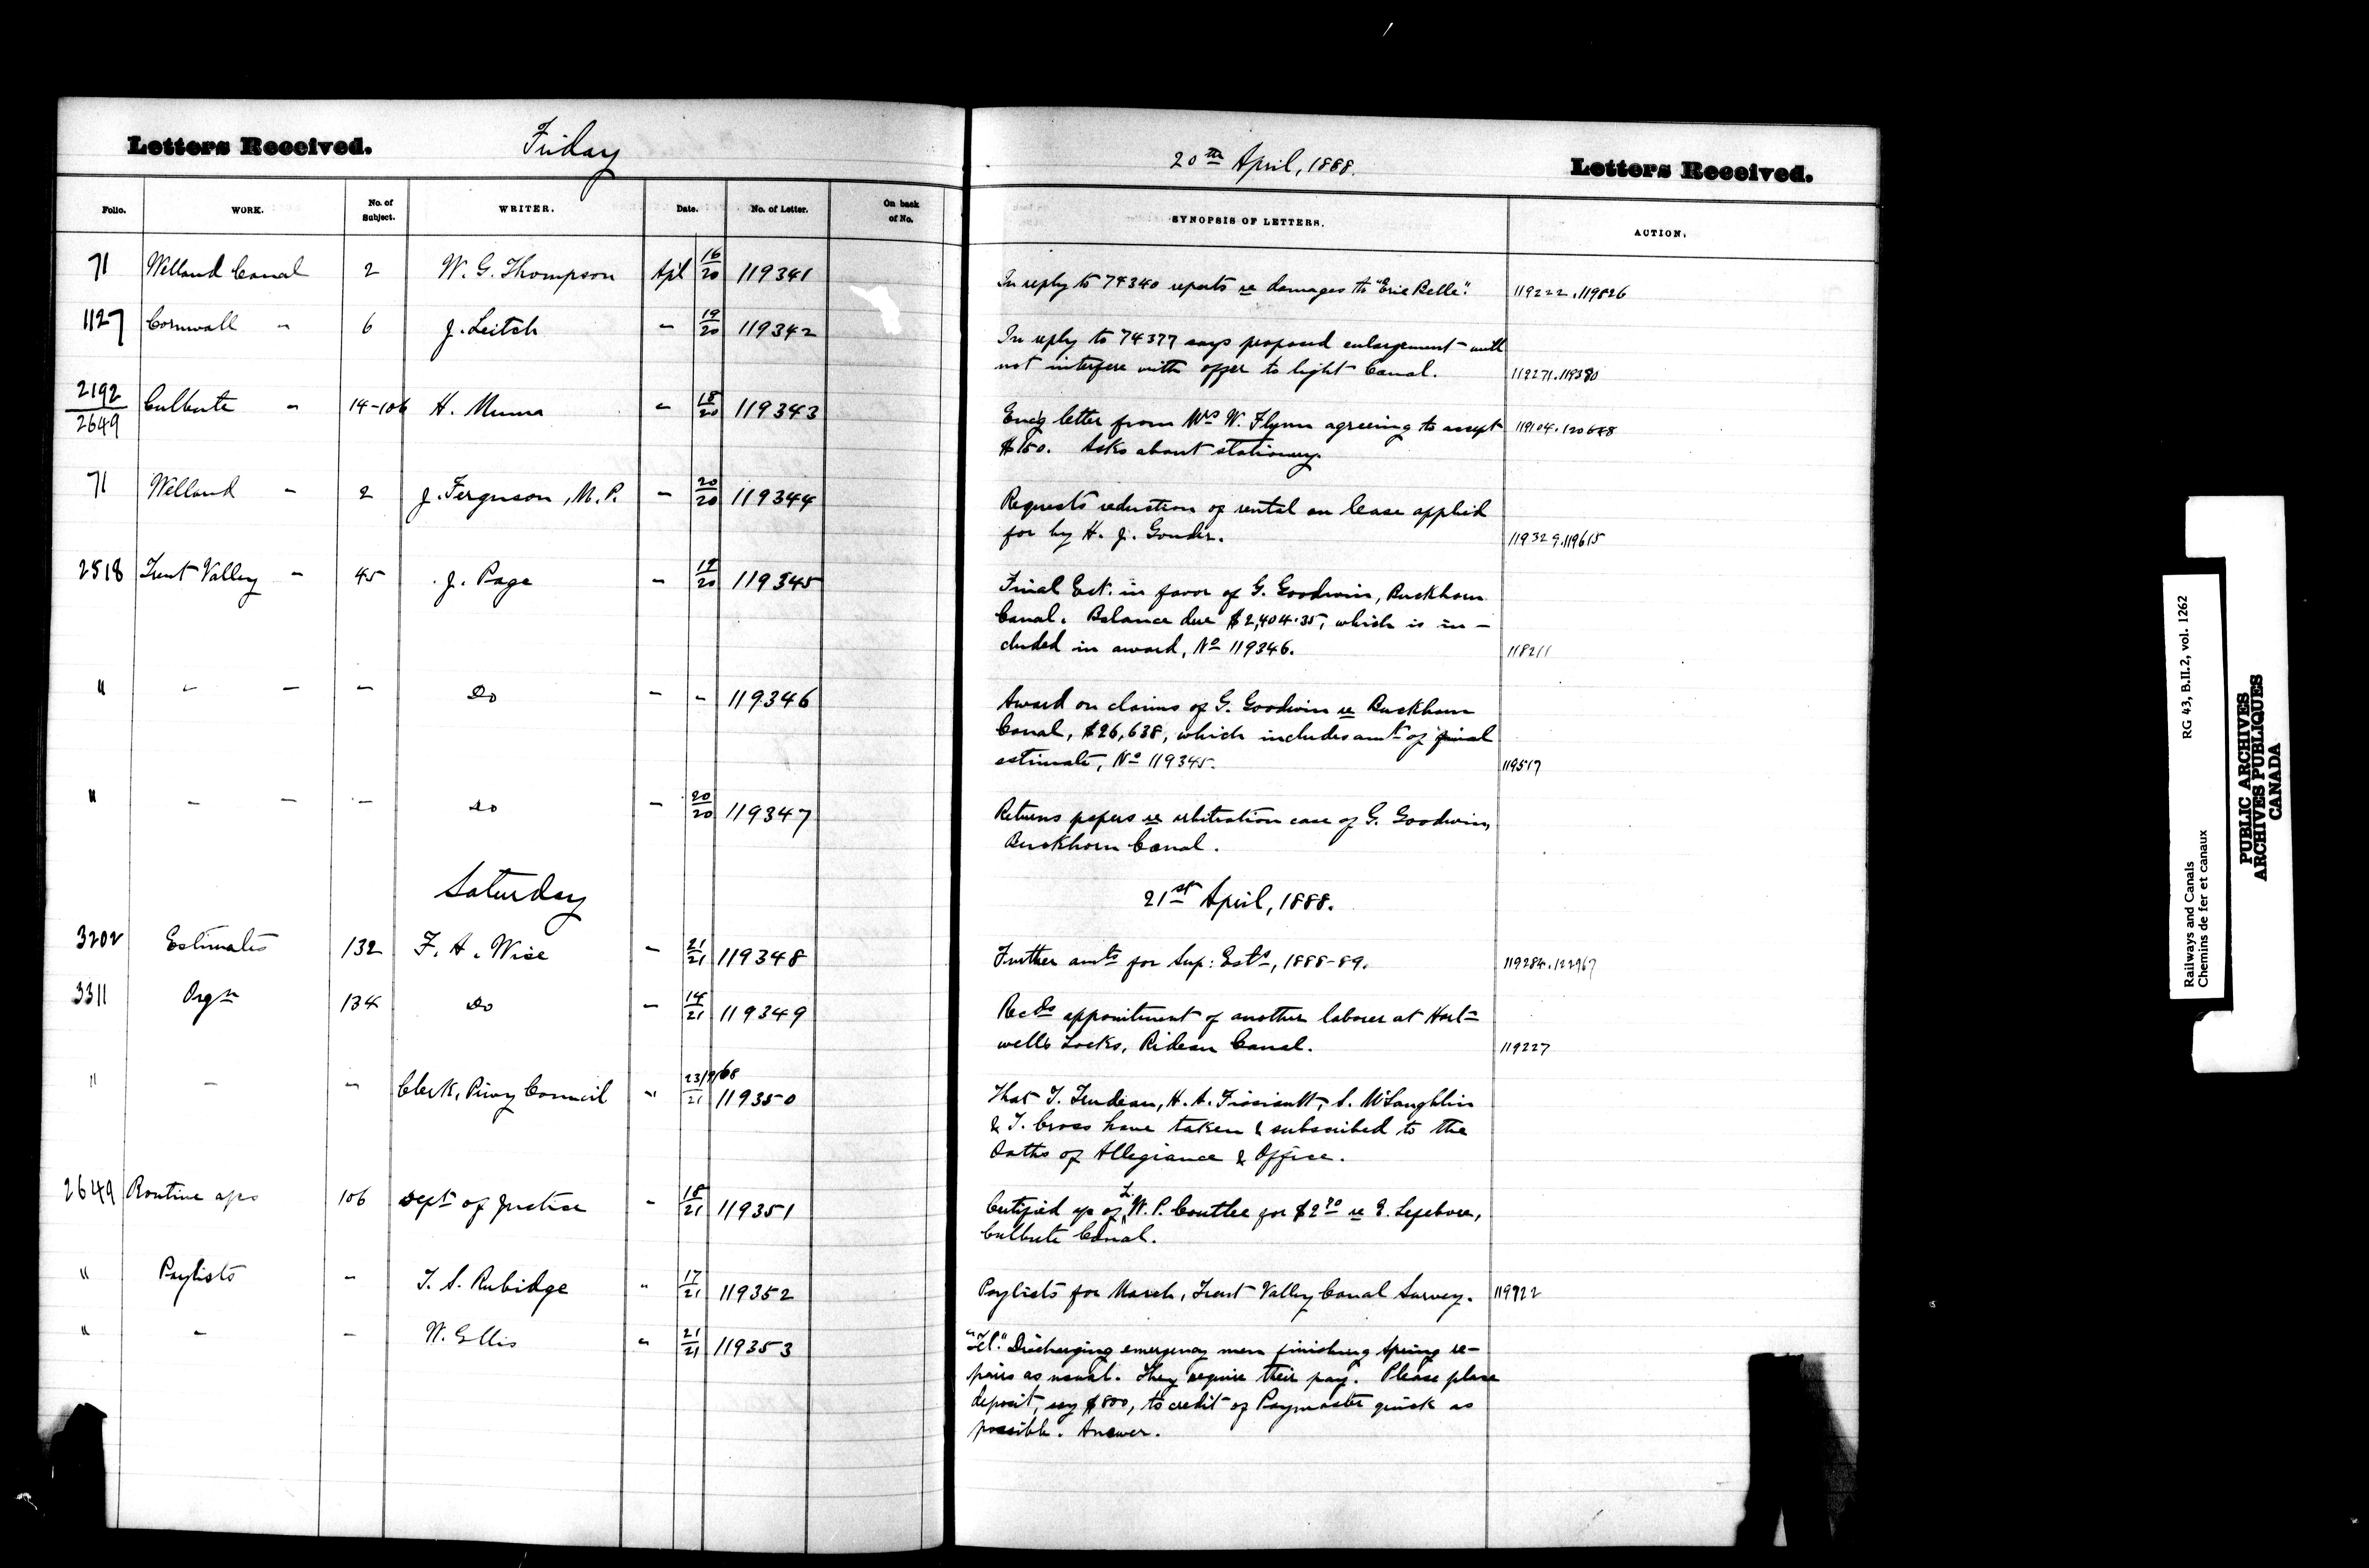 Letters Received. Friday
20th April, 1888. Letters Received.
Folio. WORK. No. of Subject. WRITER. Date. No. of Letter. On back of No. SYNOPSIS OF LETTERS. ACTION.
71 Welland Canal 2 W. G. Thompson Apl 16/20 119341
In reply to 74340 reports re damages to "Erie Belle". 119222.119826
1127 Cornwall " 6 J. Leitch " 19/20 119342
In reply to 74377 says proposed enlargement will
not interfere with offer to light Canal. 119271.119380
2192/2649 Culbute " 14-106 H. Munro " 18/20 119343
Encg letter from Mrs W. Flynn agreeing to accept 119104.120678
$150. Asks about stationery.
71 Welland " 2 J. Ferguson, M.P. " 20/20 119344
Requests reduction of rental on lease applied
for by H. J. Gonder. 119329.119615
2518 Trent Valley " 45 J. Page " 19/20 119345
Final Est. in favor of G. Goodwin, Buckhorn
Canal. Balance due $2,404.35, which is in-
cluded in award, No 119346. 118211
" " " " Do " " 119346
Award on claims of G. Goodwin re Buckhorn
Canal, $26,638, which includes amt of final
estimate, No 119345. 119517
" " " " Do " 20/20 119347
Returns papers re arbitration case of G. Goodwin,
Buckhorn Canal.
Saturday 21st April, 1888.
3202 Estimates 132 F. A. Wise " 21/21 119348
Further amts for Sup: Ests, 1888-89. 119284.122967
3311 Orgn 134 Do " 14/21 119349
Recds appointment of another laborer at Hart-
wells Locks, Rideau Canal. 119227
" " " Clerk, Privy Council " 23/9/68/21 119350
That T. Trudeau, H. A. Fissiault, S. McLaughlin
& T. Cross have taken & subscribed to the
Oaths of Allegiance & Office.
2649 Routine a/cs 106 Dept of Justice " 18/21 119351
Certified a/c of L. W. P. Couttee for $2.70 re E. Lefebvre,
Culbute Canal.
" Paylists " T. S. Rubidge " 17/21 119352
Paylists for March, Trent Valley Canal Survey. 119922
" " " W. Ellis " 21/21 119353
"Tel." Discharging emergency men finishing spring re-
pairs as usual. They require their pay. Please place
deposit, say $800, to credit of Paymaster quick as
possible. Answer.
Railways and Canals RG 43, B.II.2, vol. 1262
Chemins de fer et canaux
PUBLIC ARCHIVES
ARCHIVES PUBLIQUES
CANADA